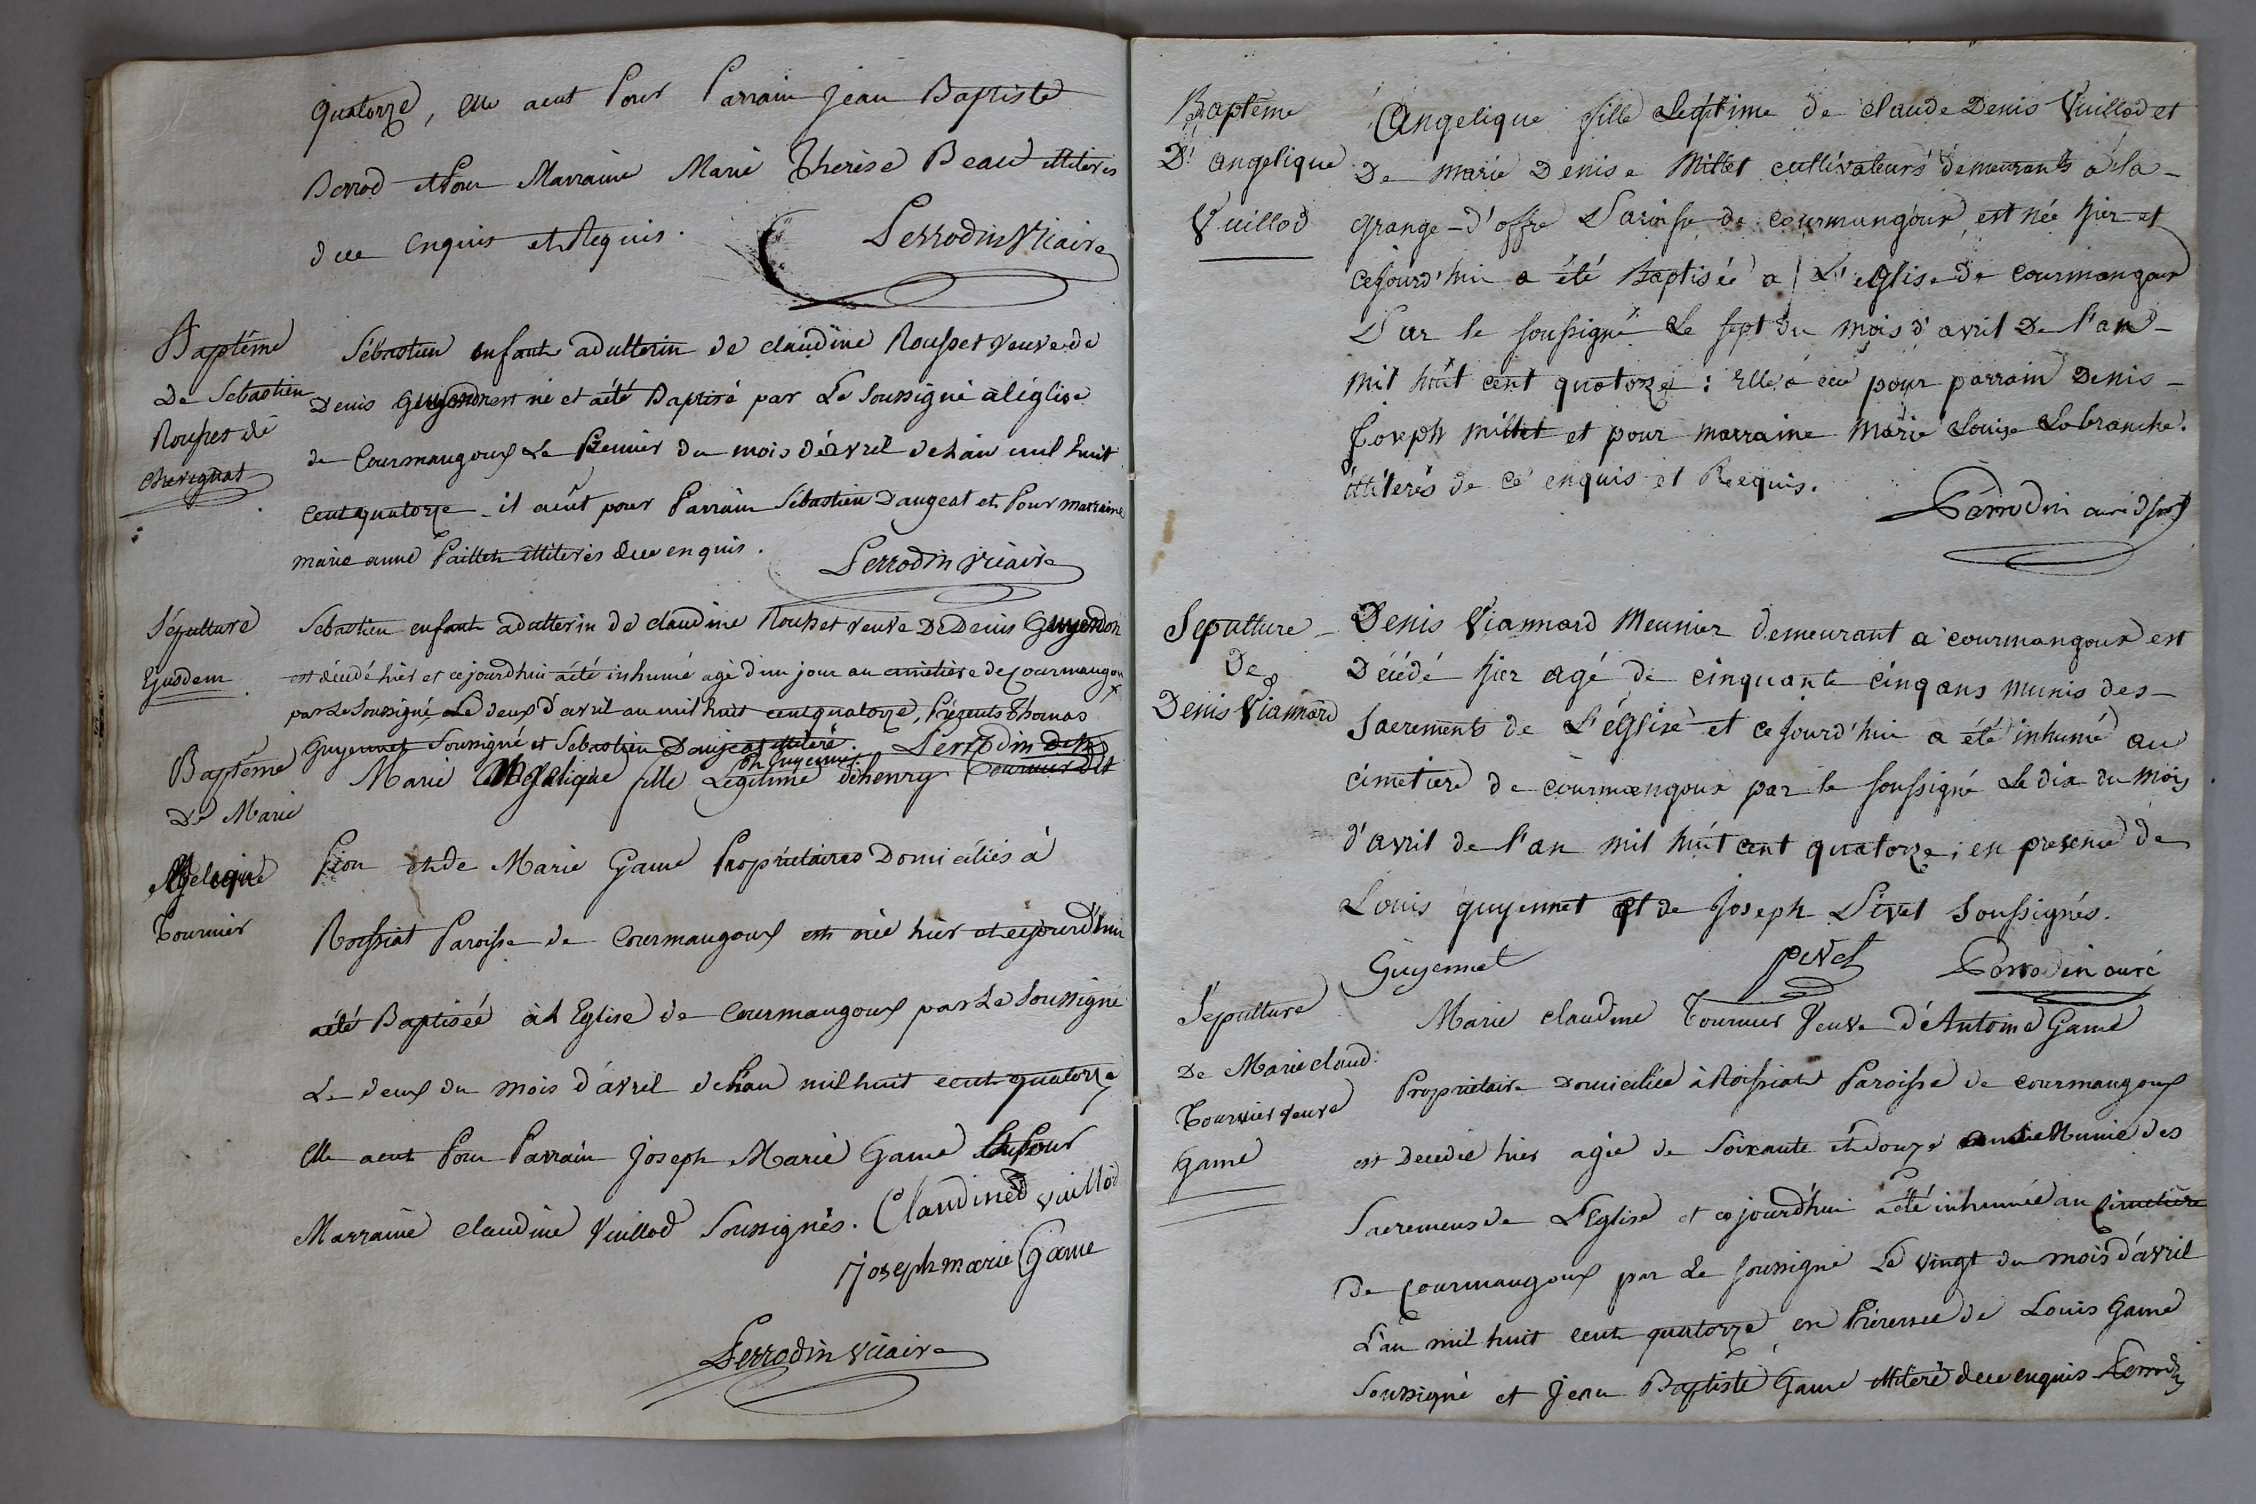 quatorze, elle a eut Pour Parrain Jean Baptiste
Berrod et Pour Marraine Marie Therèse Beau illiterés
d ce enquis et Requis.
Perrodin Vicaire
Baptême
De Sebastien
Rousset de
chevignat
Sébastien enfant adulterin de claudine Rousset veuve de
Denis Guygondon est né et a été Baptisé par Le Soussigné a l'église
de Courmangoux Le Premier du mois d'avril de L'an mil huit
cent quatorze - il a eût pour Parrain Sébastien Daugeat et Pour marraine
marie anne Paillet illiterés de ce enquis.
Perrodin Vicaire
Sépulture
Ejusdem
Sebastien enfant adulterin de claudine Rousset veuve De Denis
est décedé hier et ce jourdhui a été inhumé agé d'un jour au cimetiere de Courmangoux
par Le Soussigné Le deux d'avril an mil huit cent quatorze, Présents Thomas
Guyennet Soussigné et Sebastien Daujeat illiteré. Perrodin
th Guyennet
Baptême
De Marie
Angelique
Tournier
Marie Angelique fille Legitime d'henry Tournier dit
Pion et de Marie Game Propriétaires Domiciliés à
Roissiat Paroisse de Courmangoux est née hier et cejourd'hui
a été Baptisée à L'Eglise de Courmangoux par Le Soussigné
Le deux du mois d'avril de L'an mil huit cent quatorze
Elle a eut Pour Parrain Joseph Marie Game et Pour
Marraine claudine Vuillod Soussignés. Claudine Vuillod
Joseph marie Game
Perrodin Vicaire
Baptême
D'angelique
Vuillod
Angelique fille Legitime de claude Denis Vuillod et
De marie Denise Millet cultivateurs demeurants à la -
grange-d'offre Paroisse de courmangoux, est née hier et
cejourd'hui a été Baptisée a L'eglise de courmangoux
Par le soussigné Le sept du mois d'avril De l'an -
mil huit cent quatorze : Elle a eu pour parrain Denis -
Joseph millet et pour marraine Marie Louise Labranche.
illiterés de ce enquis et Requis.
Perrodin curé
Sepulture -
De
Denis Viannard
Denis Viannard Meunier demeurant a courmangoux est
Décédé hier agé de cinquante cinq ans munis des -
Sacrements de L'église et ce jourd'hui a été inhumé au
cimetiere de courmangoux par le soussigné Le dix du mois
d'avril de l'an mil huit cent quatorze ; en presence de
Louis guyennet et de Joseph Pivet Soussignés.
Guyennet Pivet Perrodin curé
Sépulture
De Marie claud:
Tournier veuve
Game
Marie claudine Tournier Veuve d'Antoine Game
Propriétaire Domiciliée à Roissiat Paroisse de courmangoux
est Decedée hier agée de Soixante et douze ans Munie des
Sacremens de L'Eglise et ce jourd'hui a été inhumée au Cimetière
De Courmangoux par Le Soussigné Le Vingt du mois d'avril
L'an mil huit cent quatorze en Présence de Louis Game
Soussigné et Jean Baptiste Game illiteré de ce enquis Perrodin